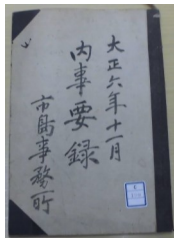 大正六年十一月
内事要録
市島事務所